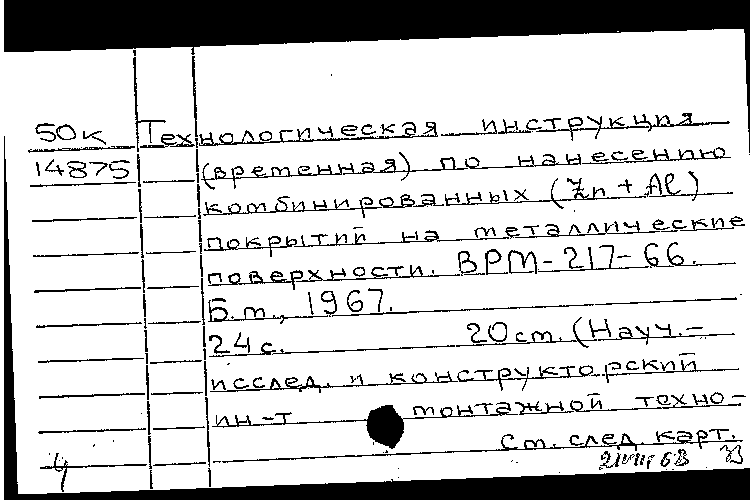 50к Технологическая инструкция
14875 (временная) по нанесению
комбинированных (Zn + Al)
покрытий на металлические
поверхности. ВРМ-217-66.
Б.м., 1967.
24с. 20см. (Науч.-
исслед. и конструкторский
ин-т монтажной техно-
См. след. карт.
4 68